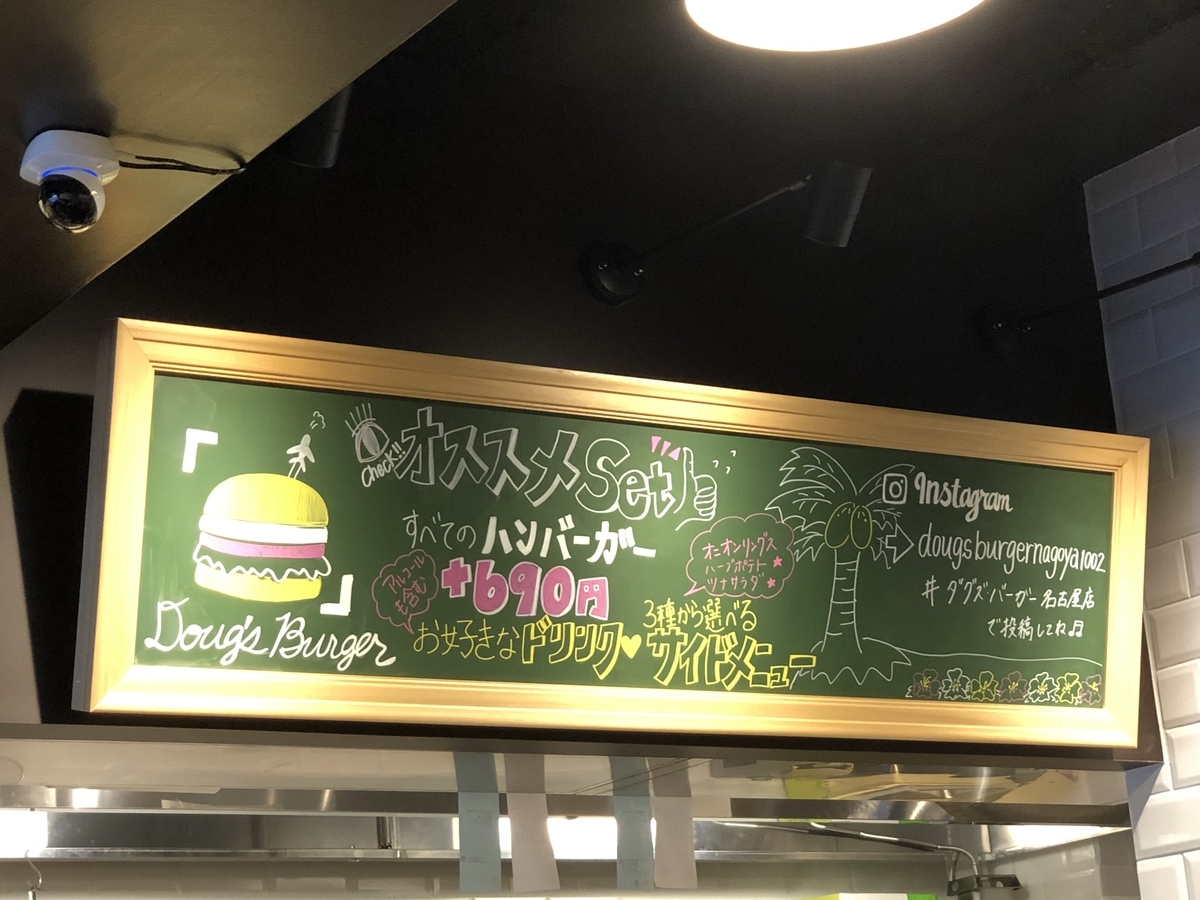 Doug's Burger
Check!!
オススメSet
すべてのハンバーガー
+690円
アルコール
も含む
お好きなドリンク♥
オニオンリングス
ハーブポテト
ツナサラダ
3種から選べる
サイドメニュー
Instagram
dougsburgernagoya1002
#ダグズ・バーガー名古屋店
で投稿してね♫